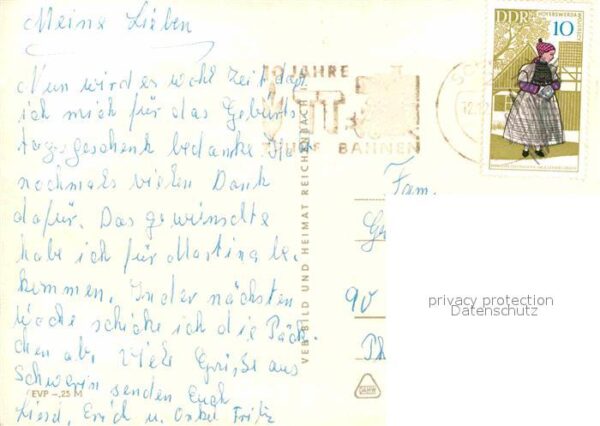 Meine Lieben
Nun wird es wohl Zeit daß
ich mich für das Geburts
tagsgeschenk bedanke. Habt
nochmals vielen Dank
dafür. Das gewünschte
habe ich für Martina be-
kommen. In der nächsten
Woche schicke ich die Päck-
chen ab. Viele Grüße aus
Schwerin senden Euch
Erich u. Onkel Fritz
EVP -.25 M
VEB BILD UND HEIMAT REICHENBACH I.
JAHRE
BAHNEN
DDR
HOYERSWERDA
10
Fam.
90
privacy protection
Datenschutz